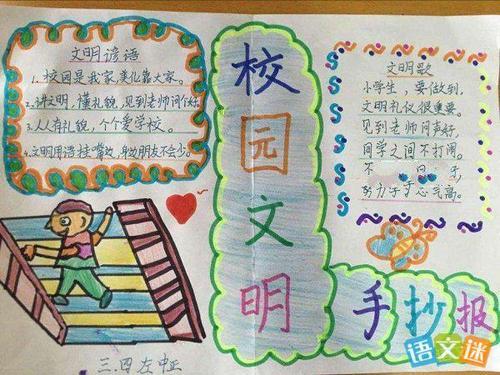 文明谚语
1.校园是我家,美化靠大家。
2.讲文明,懂礼貌,见到老师问个好
3.人人有礼貌,个个爱学校。
4.文明用语挂嘴边,身边朋友不会少。
校
园
文
明
手抄报
文明歌
小学生,要做到,
文明礼仪很重要。
见到老师问声好,
同学之间不打闹。
不
努力学 志气高。
三.四 左
语文迷